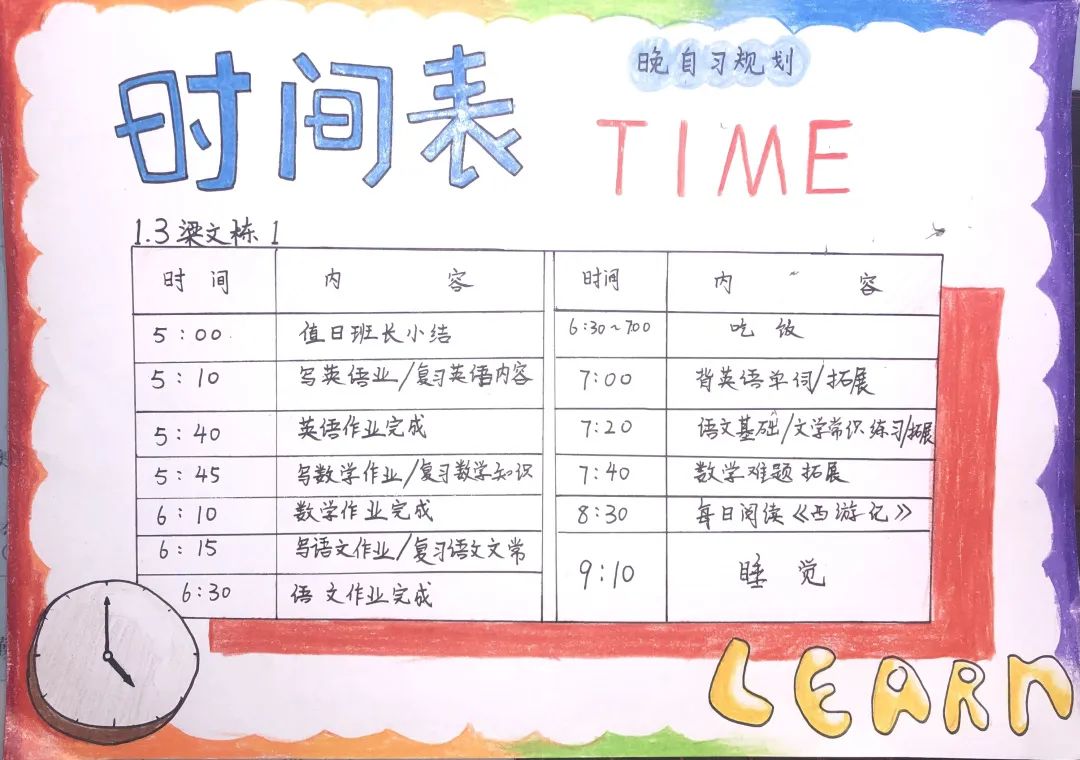 时间表
晚自习规划
TIME
1.3梁文栋 1
时 间 内 容
5:00 值日班长小结
5:10 写英语业/复习英语内容
5:40 英语作业完成
5:45 写数学作业/复习数学知识
6:10 数学作业完成
6:15 写语文作业/复习语文文常
6:30 语文作业完成
时间 内 容
6:30~700 吃饭
7:00 背英语单词/拓展
7:20 语文基础/文学常识练习/拓展
7:40 数学难题拓展
8:30 每日阅读《西游记》
9:10 睡觉
LEARN